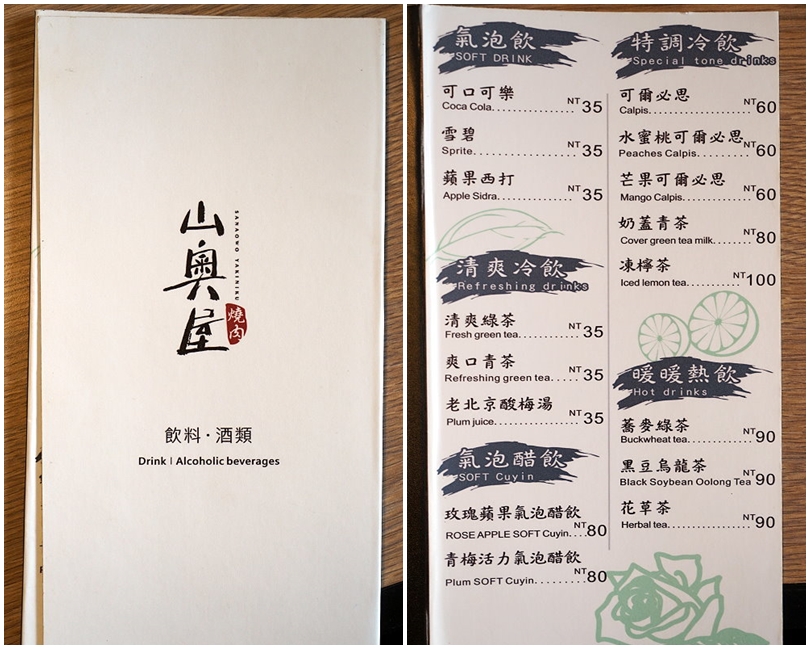 山奧屋
SANAOWO YAKINIKU
燒肉
飲料·酒類
Drink | Alcoholic beverages
氣泡飲
SOFT DRINK
可口可樂
Coca Cola.................NT35
雪碧
Sprite.....................NT35
蘋果西打
Apple Sidra................NT35
清爽冷飲
Refreshing drinks
清爽綠茶
Fresh green tea...........NT35
爽口青茶
Refreshing green tea.....NT35
老北京酸梅湯
Plum juice................NT35
氣泡醋飲
SOFT Cuyin
玫瑰蘋果氣泡醋飲
ROSE APPLE SOFT Cuyin....NT80
青梅活力氣泡醋飲
Plum SOFT Cuyin.........NT80
特調冷飲
Special tone drinks
可爾必思
Calpis....................NT60
水蜜桃可爾必思
Peaches Calpis...........NT60
芒果可爾必思
Mango Calpis.............NT60
奶蓋青茶
Cover green tea milk.......NT80
凍檸茶
Iced lemon tea...........NT100
暖暖熱飲
Hot drinks
蕎麥綠茶
Buckwheat tea............NT90
黑豆烏龍茶
Black Soybean Oolong Tea NT90
花草茶
Herbal tea................NT90